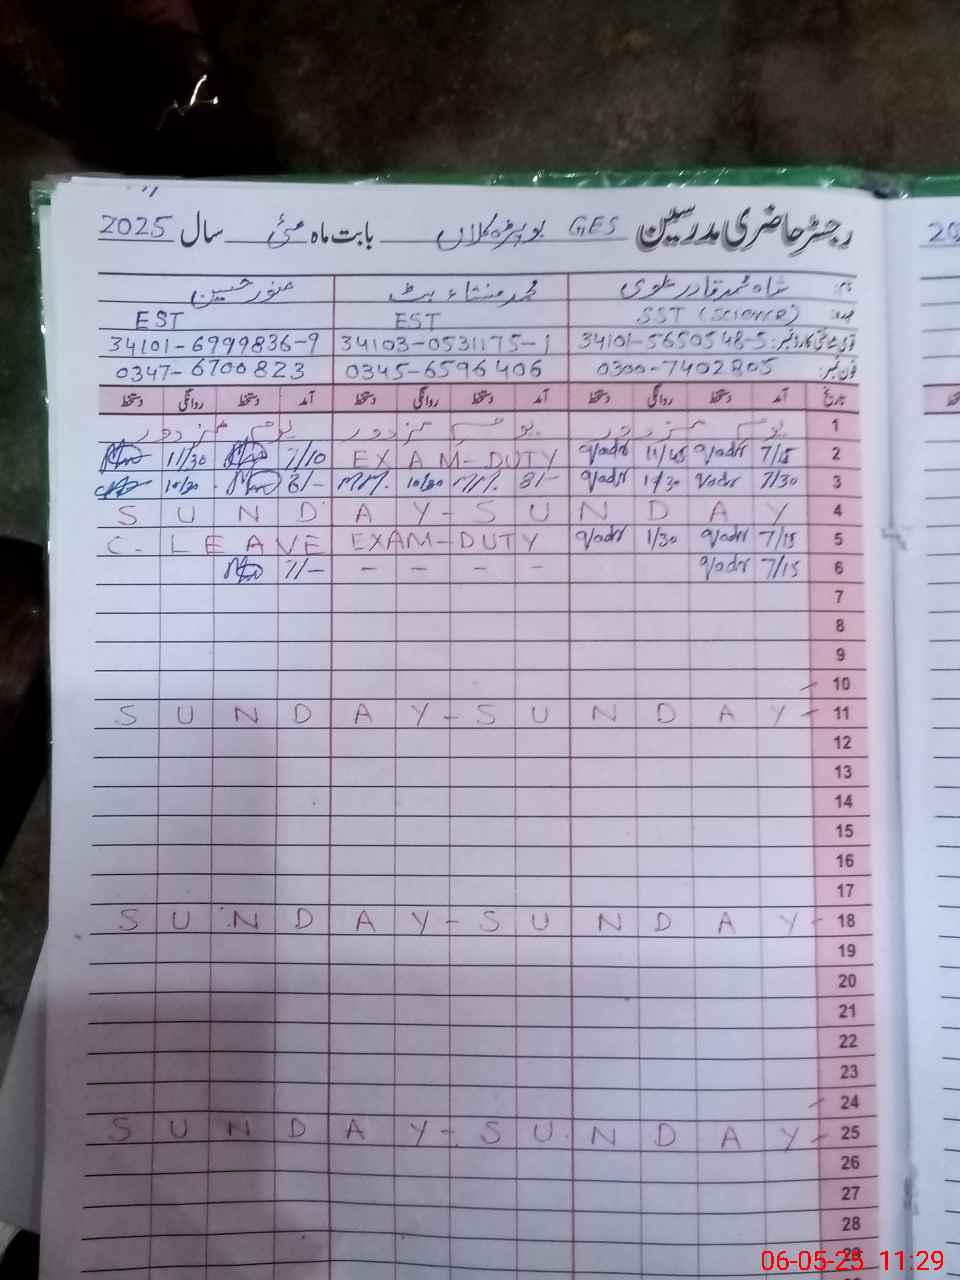 رجسٹر حاضری مدرسین GES بوپڑہ کلاں بابت ماہ مئی سال 2025
نام: شاہ محمد قادر علوی محمد منشاء بٹ منور حسین
عہدہ: SST (Science) EST EST
34101-5650548-5 34103-0531175-1 34101-6999836-9
فون نمبر: 0300-7402805 0345-6596406 0347-6700823
تاریخ آمد دستخط روانگی دستخط آمد دستخط روانگی دستخط آمد دستخط روانگی دستخط
1 یوم مزدور یوم مزدور یوم مزدور
2 7/15 Qadr 11/45 Qadr EXAM-DUTY 7/10 11/30
3 7/30 Qadr 11/30 Qadr 8/- 10/30 8/- 10/30
4 SUNDAY-SUNDAY
5 7/15 Qadr 1/30 Qadr EXAM-DUTY C. LEAVE
6 7/15 Qadr - - - - 7/-
7
8
9
10
11 SUNDAY-SUNDAY
12
13
14
15
16
17
18 SUNDAY-SUNDAY
19
20
21
22
23
24
25 SUNDAY-SUNDAY
26
27
28
29
06-05-25 11:29